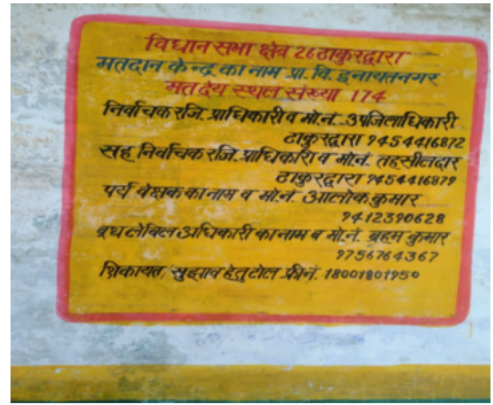 विधान सभा क्षेत्र 26 ठाकुरद्वारा
मतदान केन्द्र का नाम प्रा. वि. इनायतनगर
मतदेय स्थल संख्या 174
निर्वाचक रजि. प्राधिकारी व मो.नं. उपजिलाधिकारी
ठाकुरद्वारा 9454416872
सह निर्वाचक रजि. प्राधिकारी व मो.नं. तहसीलदार
ठाकुरद्वारा 9454416879
पर्य वेक्षक का नाम व मो.नं. आलोक कुमार
9412390628
बूथ लेविल अधिकारी का नाम व मो.नं. ब्रहम कुमार
9756764367
शिकायत, सुझाव हेतु टोल फ्री नं. 18001801950